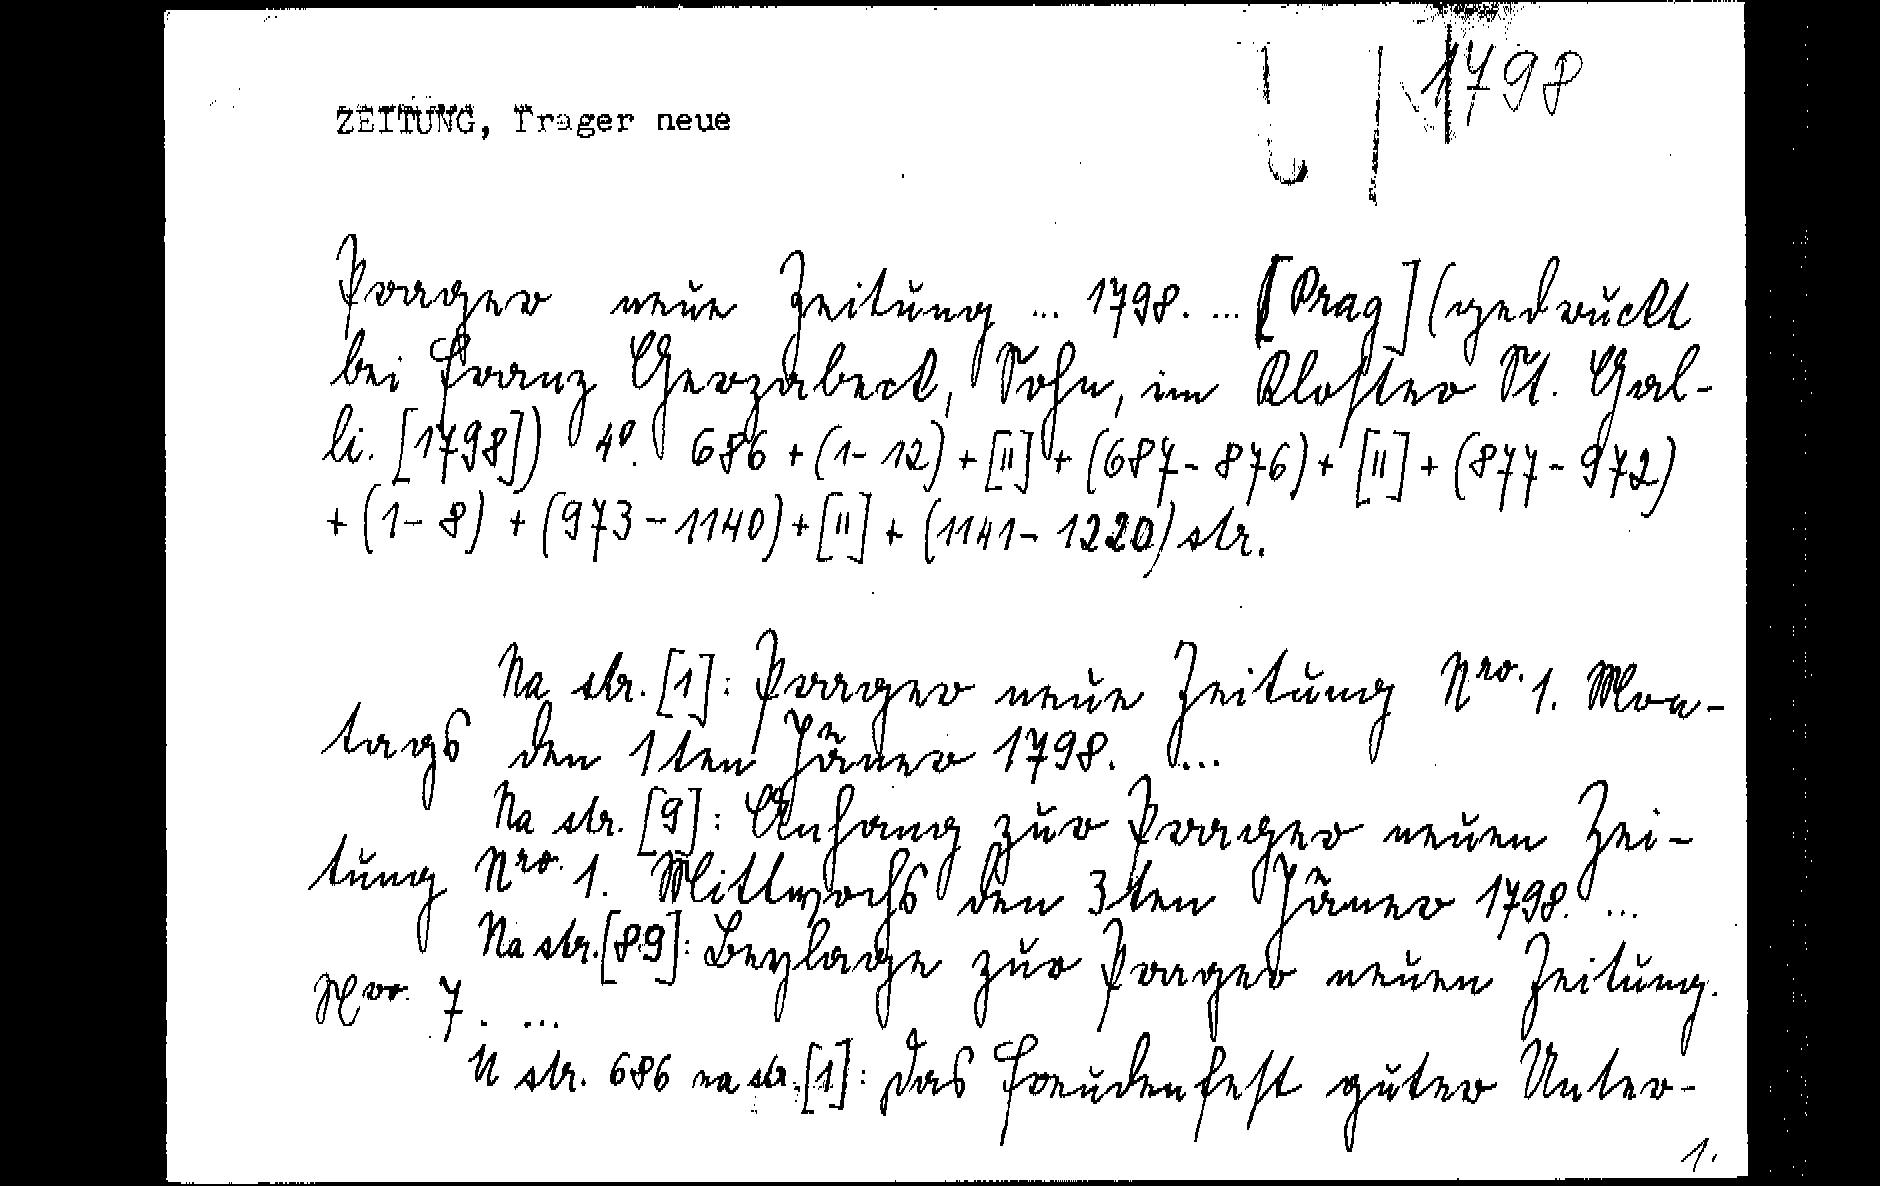 1798
ZEITUNG, Prager neue
Prager neue Zeitung ... 1798. ... [Prag] (gedruckt
bei Franz Gerzabeck, Sohn, im Kloster St. Gal-
li. [1798]) 4º. 686 + (1-12) + [II] + (687-876) + [II] + (877-972)
+ (1-8) + (973-1140) + [II] + (1141-1220) str.
Na str. [1]: Prager neue Zeitung Nro. 1. Mon-
tags den 1ten Jäner 1798. ...
Na str. [9]: Anhang zur Prager neuen Zei-
tung Nro. 1. Mittwochs den 3ten Jäner 1798. ...
Na str. [89]: Beylage zur Prager neuen Zeitung.
Nro. 7. ...
U str. 686 na str. [1]: Das Freudenfest guter Unter-
1.